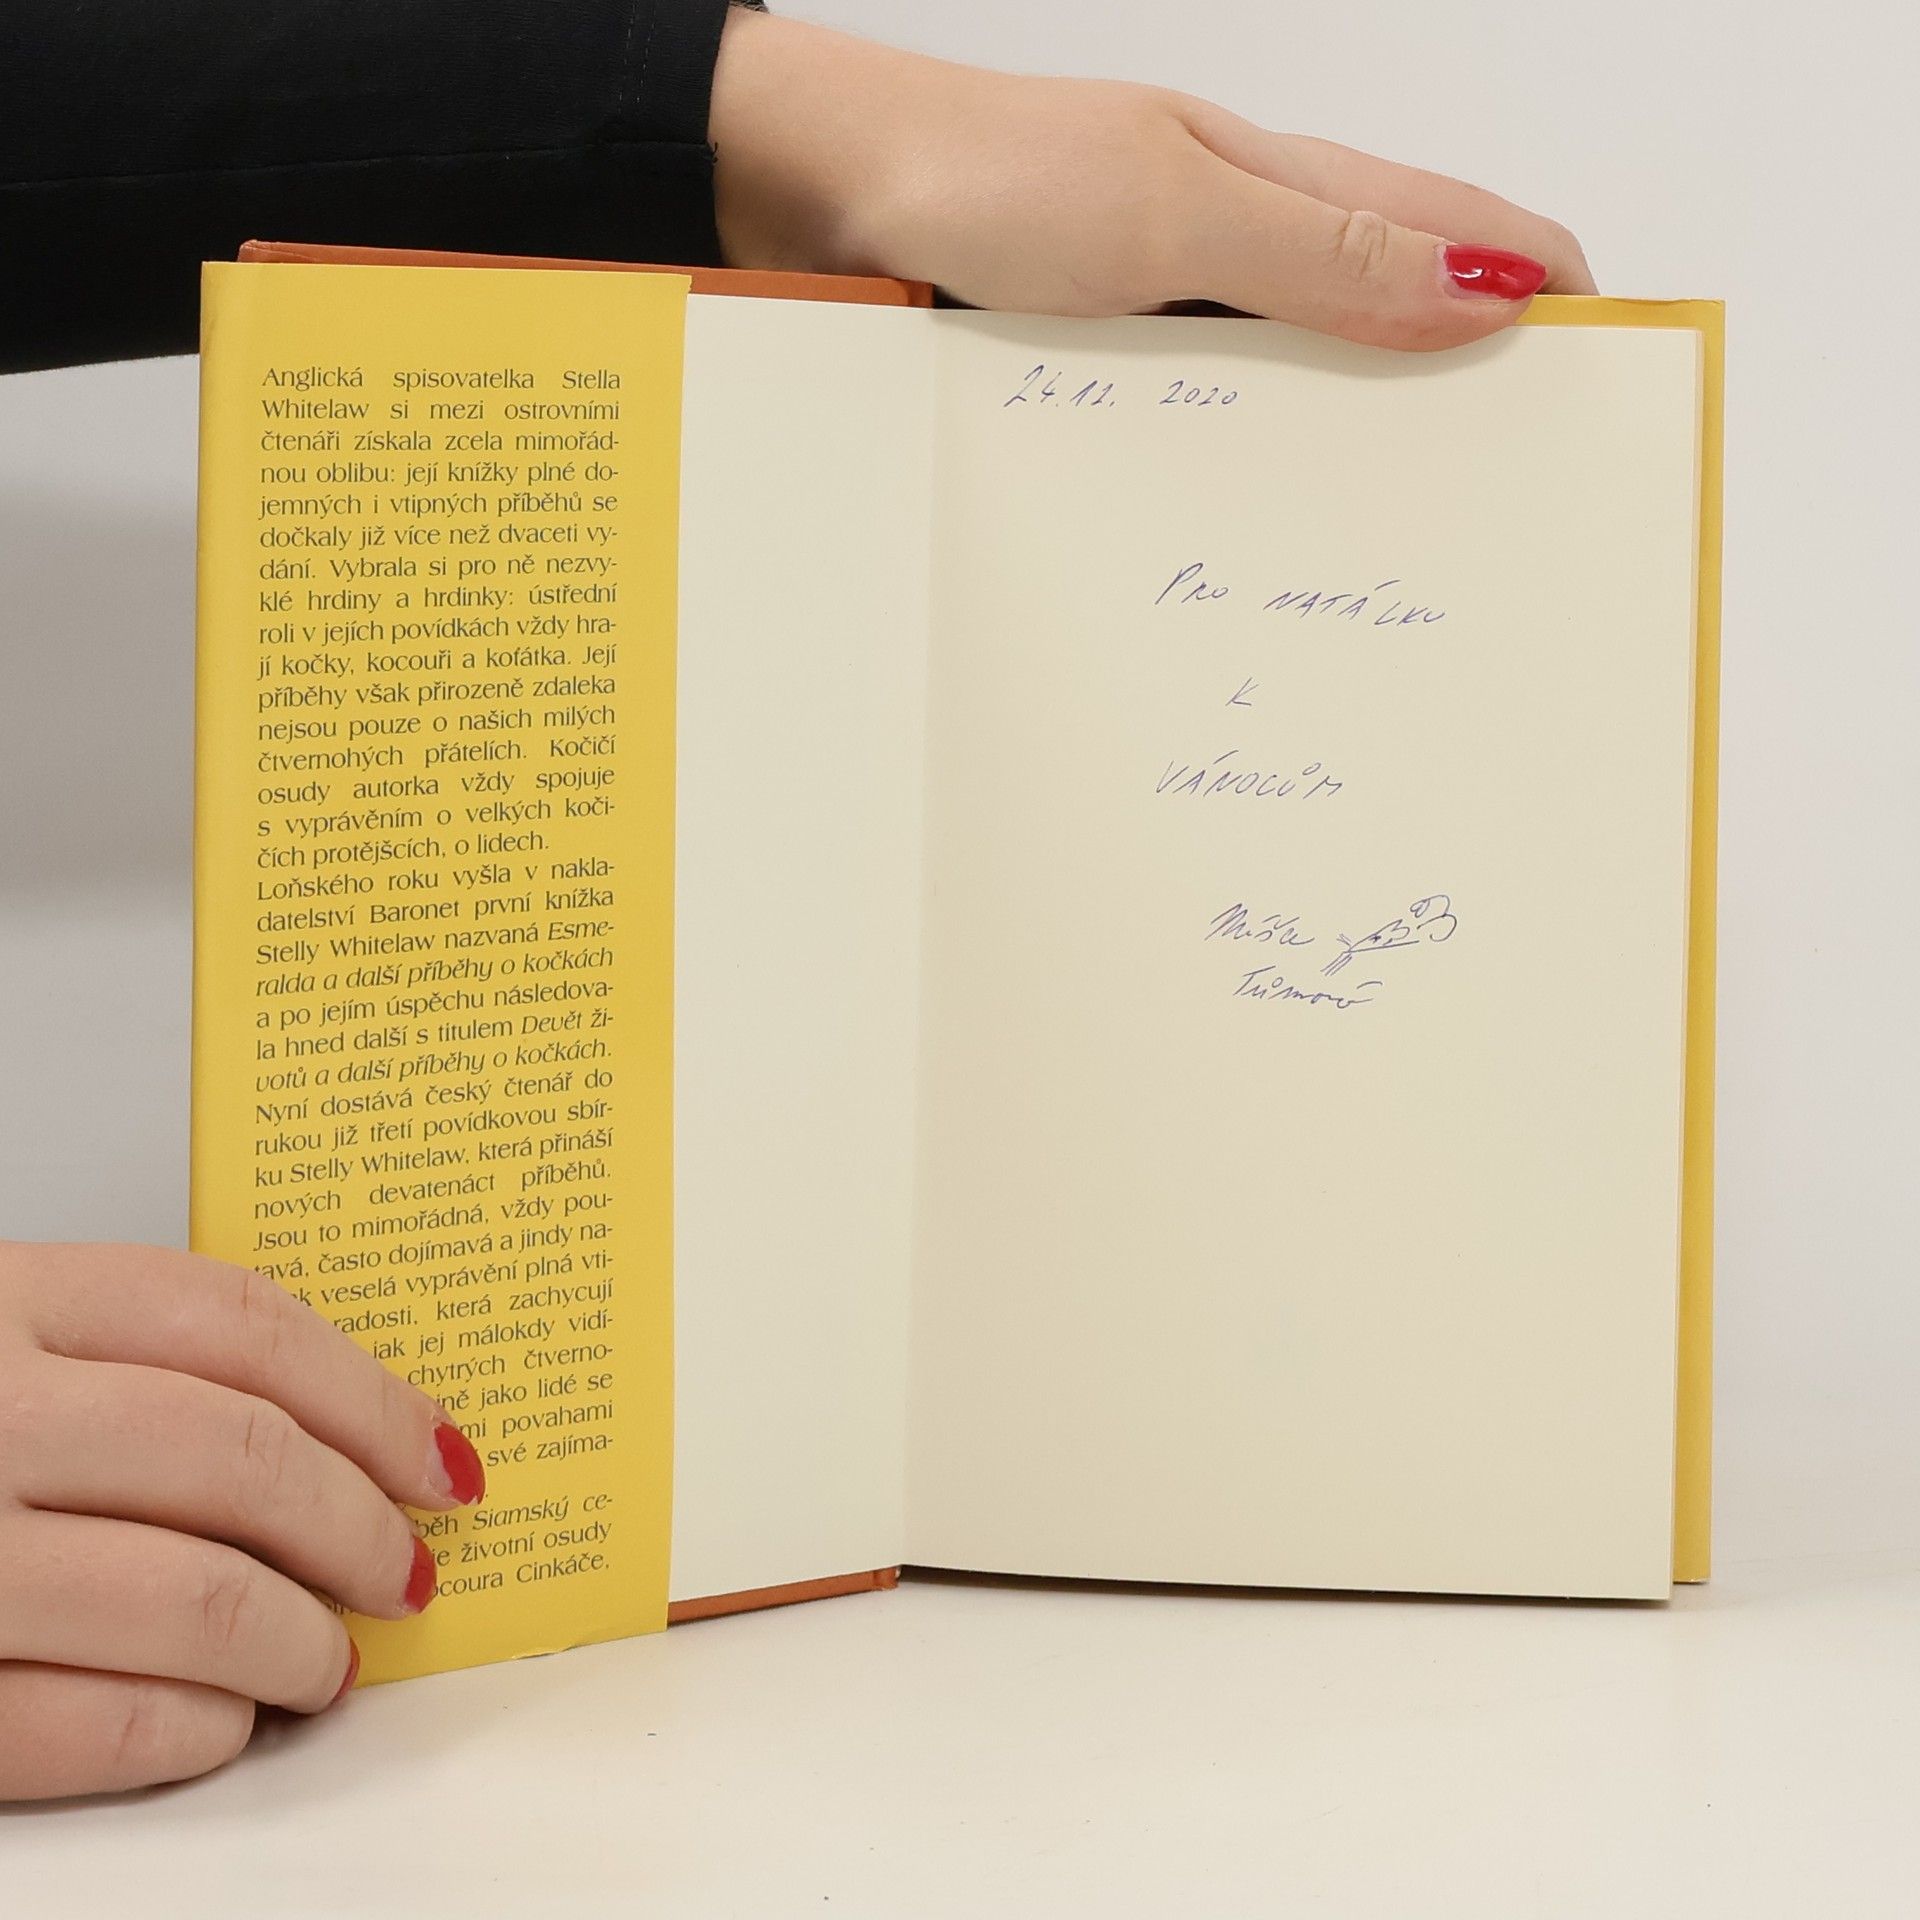 Anglická spisovatelka Stella
Whitelaw si mezi ostrovními
čtenáři získala zcela mimořád-
nou oblibu: její knížky plné do-
jemných i vtipných příběhů se
dočkaly již více než dvaceti vy-
dání. Vybrala si pro ně nezvy-
klé hrdiny a hrdinky: ústřední
roli v jejích povídkách vždy hra-
jí kočky, kocouři a koťátka. Její
příběhy však přirozeně zdaleka
nejsou pouze o našich milých
čtvernohých přátelích. Kočičí
osudy autorka vždy spojuje
s vyprávěním o velkých koči-
čích protějšcích, o lidech.
Loňského roku vyšla v nakla-
datelství Baronet první knížka
Stelly Whitelaw nazvaná Esme-
ralda a další příběhy o kočkách
a po jejím úspěchu následova-
la hned další s titulem Devět ži-
votů a další příběhy o kočkách.
Nyní dostává český čtenář do
rukou již třetí povídkovou sbír-
ku Stelly Whitelaw, která přináší
nových devatenáct příběhů.
Jsou to mimořádná, vždy pou-
tavá, často dojímavá a jindy na-
veselá vyprávění plná vti-
radosti, která zachycují
jak jej málokdy vidí-
chytrých čtverno-
jako lidé se
povahami
své zajíma-
Siamský ce-
životní osudy
Cinkáče,
24.12. 2020
PRO NATÁLKU
K
VÁNOCŮM
Míša
Tůmová